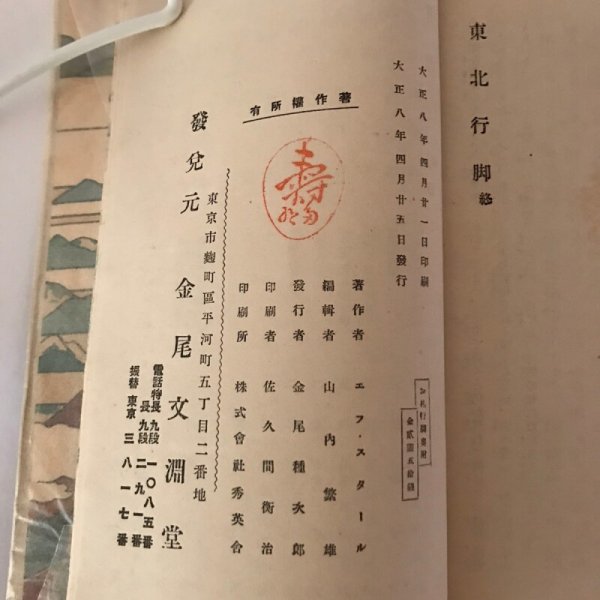 東北行脚 終
大正八年四月廿一日印刷
大正八年四月廿五日發行
金貳圓五拾錢
著作權所有
壽
著作者 エフ・スタール
編輯者 山内繁雄
發行者 金尾種次郎
印刷者 佐久間衡治
印刷所 株式會社秀英舍
東京市麴町區平河町五丁目二番地
發兌元 金尾文淵堂
電話特長九段一〇八五番
長九段二九一番
振替東京三八一七番